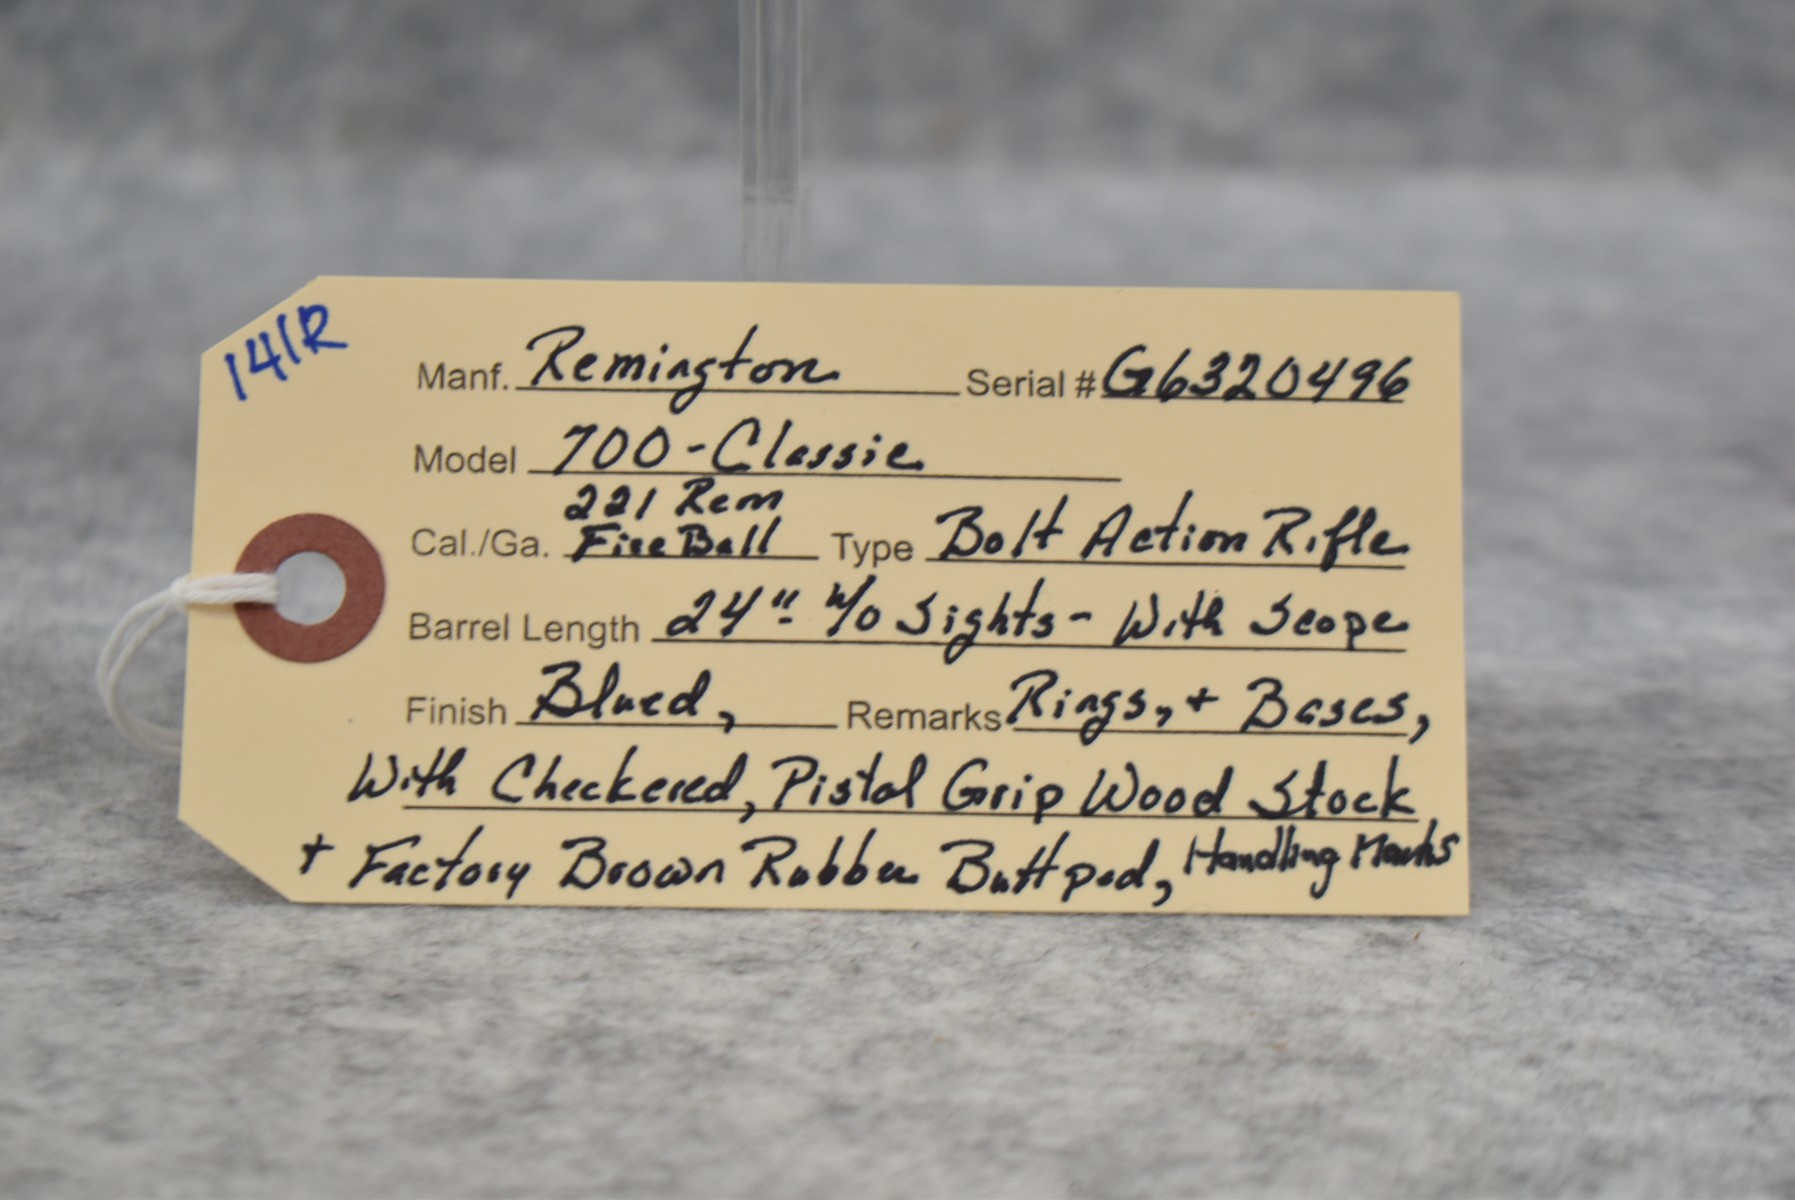 141R
Manf. Remington Serial # G6320496
Model 700-Classic
221 Rem
Cal./Ga. Fire Ball Type Bolt Action Rifle
Barrel Length 24" w/o Sights - With Scope
Finish Blued, Remarks Rings, + Bases,
With Checkered, Pistol Grip Wood Stock
+ Factory Brown Rubber Buttpad, Handling Marks